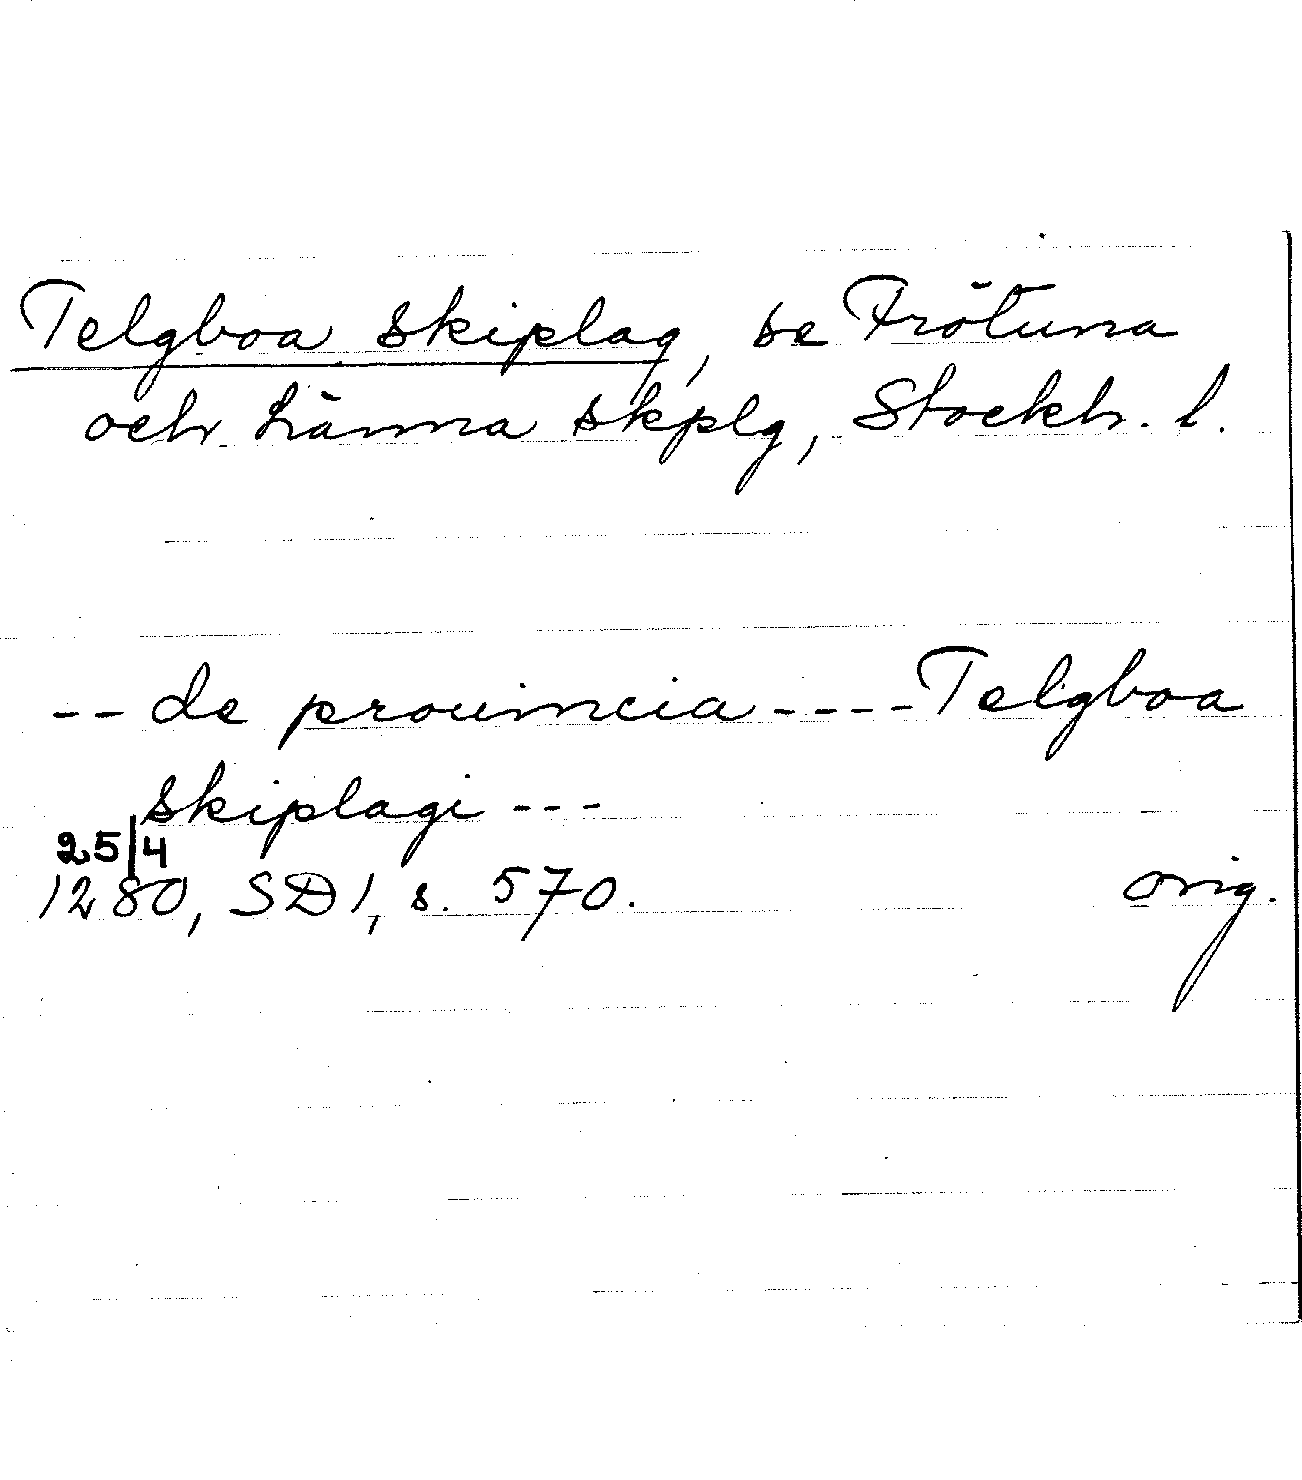 Telgboa skiplag, se Frötuna
och Länna skplg, Stockh. l.
-- de prouincia ---- Telgboa
skiplagi ---
25/4
1280, SD 1, s. 570. orig.